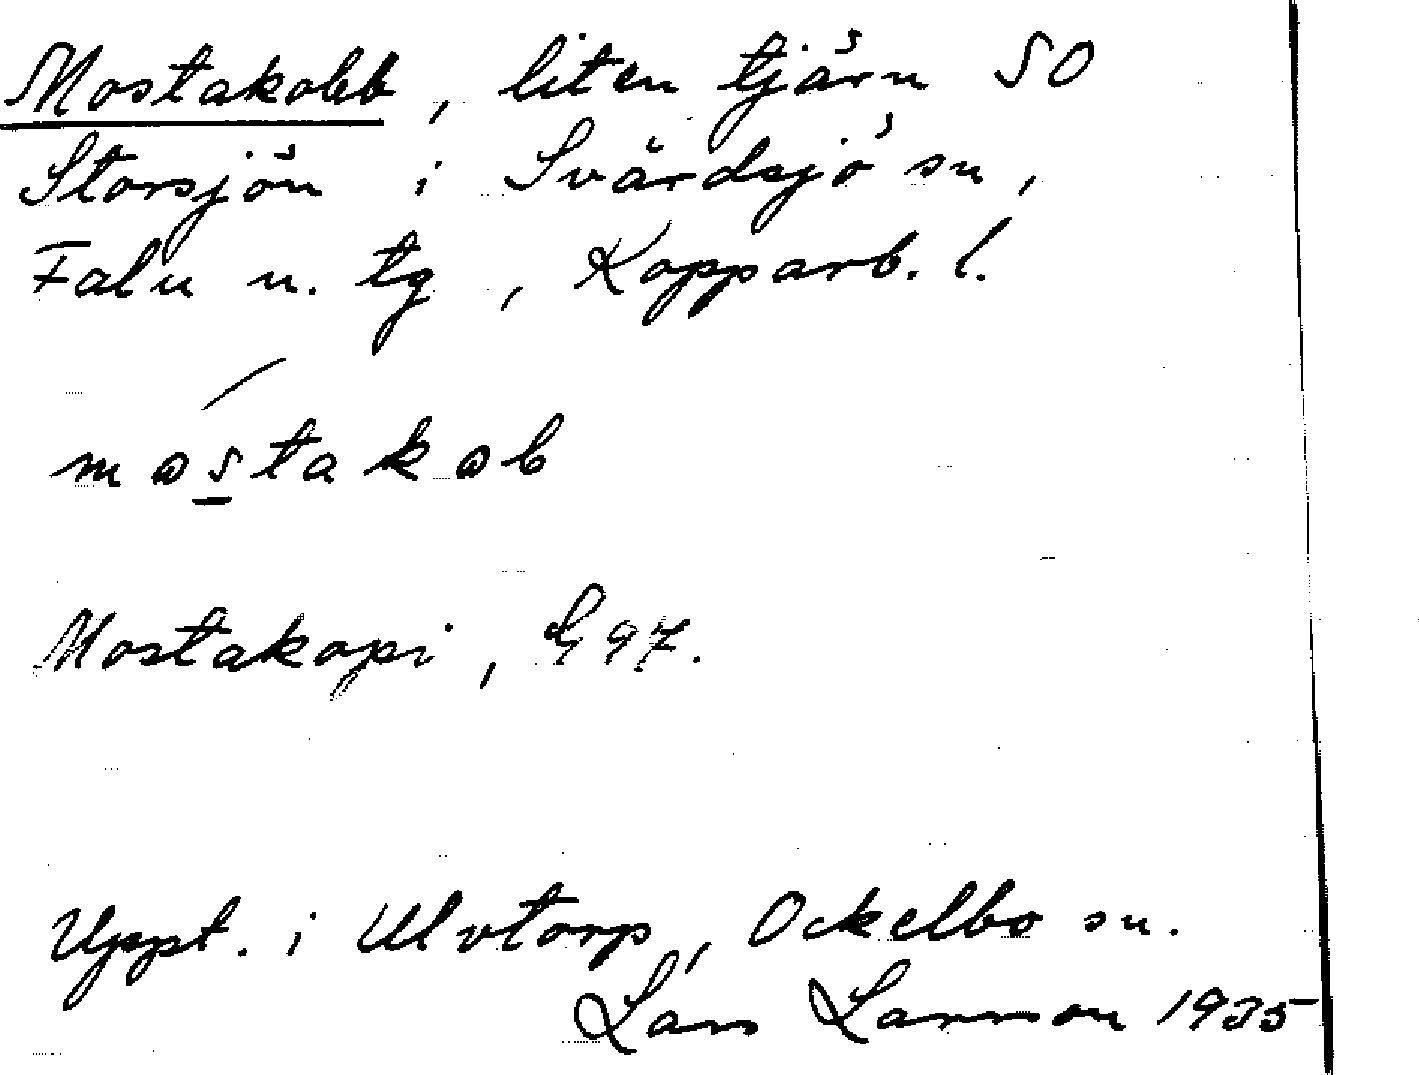 Mostakobb, liten tjärn SO
Storsjön i Svärdsjö sn,
Falu n. tg, Kopparb. l.
møstakøb
Mostakopi, G 97.
Uppt. i Ulvtorp, Ockelbo sn.
Lars Larsson 1935